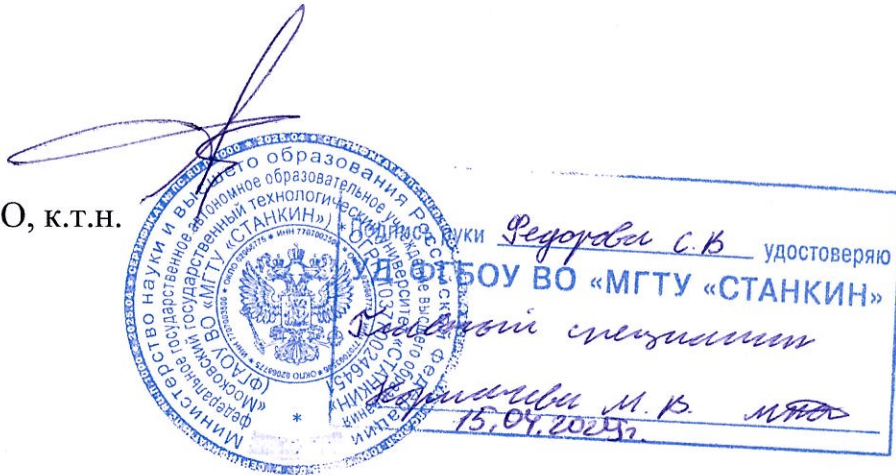 О, к.т.н.
Министерство науки и высшего образования Российской Федерации
федеральное государственное автономное образовательное учреждение высшего образования
«Московский государственный технологический университет «СТАНКИН»
(ФГАОУ ВО «МГТУ «СТАНКИН»)
Подпись руки Федорова С.В удостоверяю
УД ФГБОУ ВО «МГТУ «СТАНКИН»
Главный специалист
М. В.
15.04.2025г.